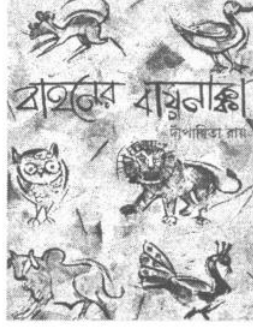 বাহনের বায়নাক্কা
দীপান্বিতা রায়